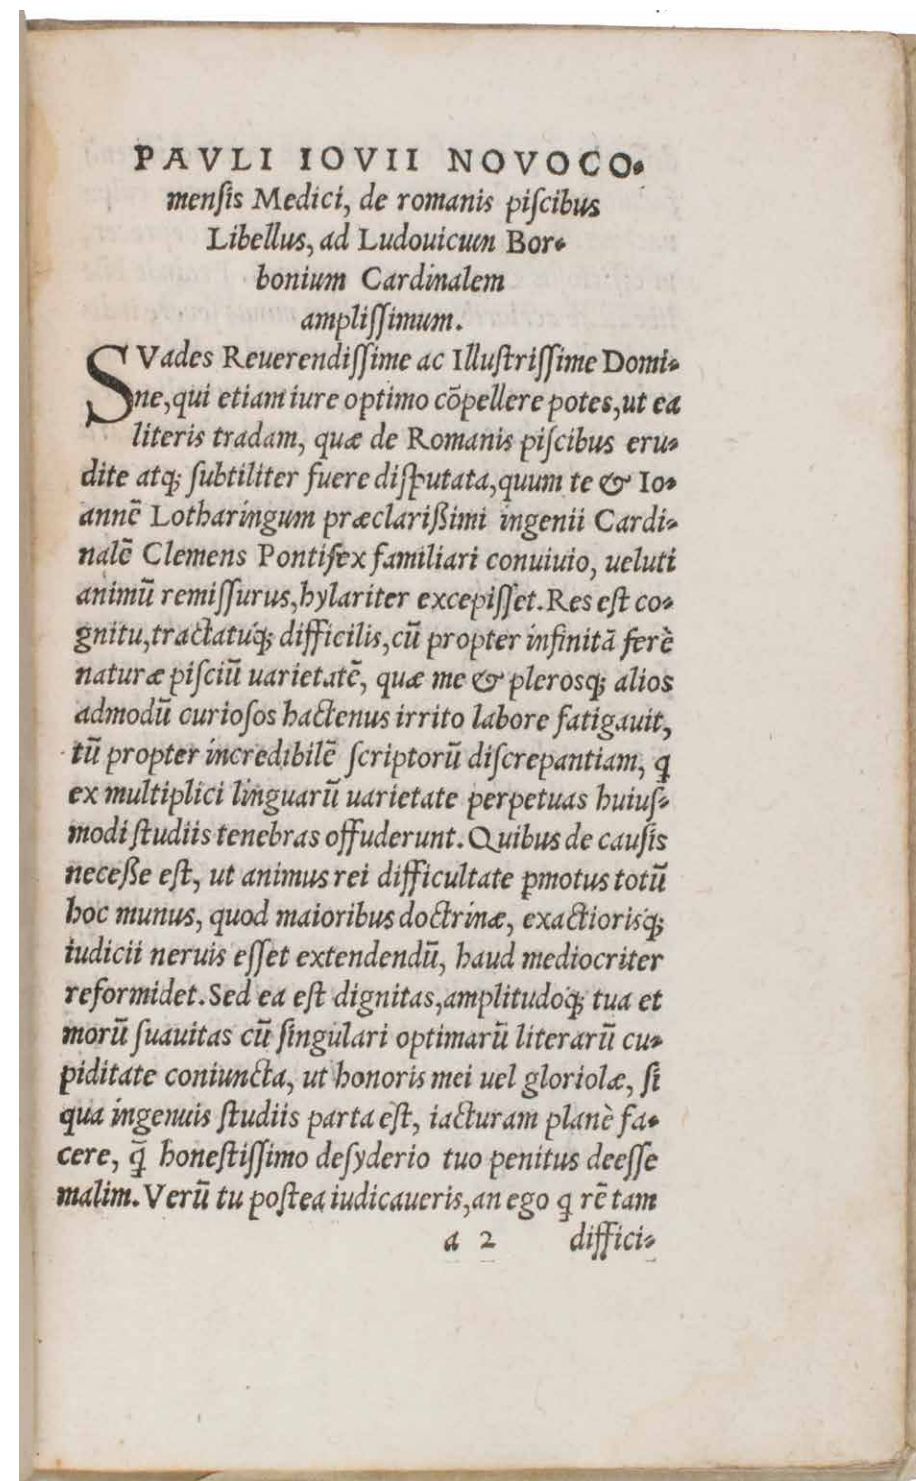 PAVLI IOVII NOVOCO-
menſis Medici, de romanis piſcibus
Libellus, ad Ludouicum Bor-
bonium Cardinalem
ampliſſimum.
SVades Reuerendiſſime ac Illuſtriſſime Domi-
ne, qui etiam iure optimo cõpellere potes, ut ea
literis tradam, quæ de Romanis piſcibus eru-
dite atq; ſubtiliter fuere diſputata, quum te & Io-
annẽ Lotharingum præclarißimi ingenii Cardi-
nalẽ Clemens Pontifex familiari conuiuio, ueluti
animũ remiſſurus, hylariter excepiſſet. Res eſt co-
gnitu, tractatuq́; difficilis, cũ propter infinitã ferè
naturæ piſciũ uarietatẽ, quæ me & pleroſq; alios
admodũ curioſos hactenus irrito labore fatigauit,
tũ propter incredibilẽ ſcriptorũ diſcrepantiam, ꝗ
ex multiplici linguarũ uarietate perpetuas huiuſ-
modi ſtudiis tenebras offuderunt. Quibus de cauſis
neceße eſt, ut animus rei difficultate ꝑmotus totũ
hoc munus, quod maioribus doctrinæ, exactiorisq́;
iudicii neruis eſſet extendendũ, haud mediocriter
reformidet. Sed ea eſt dignitas, amplitudoq́; tua et
morũ ſuauitas cũ ſingulari optimarũ literarũ cu-
piditate coniuncta, ut honoris mei uel gloriolæ, ſi
qua ingenuis ſtudiis parta eſt, iacturam planè fa-
cere, q̃ honeſtiſſimo deſyderio tuo penitus deeſſe
malim. Verũ tu poſtea iudicaueris, an ego ꝗ rẽ tam
a 2 diffici-